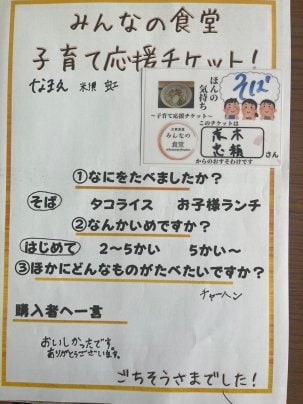 みんなの食堂
子育て応援チケット!
なまえ
そば
ほんの
気持ち
〜子育て応援チケット〜
このチケットは
みんなの
食堂
さん
からのおすそわけです
①なにをたべましたか?
そば タコライス お子様ランチ
②なんかいめですか?
はじめて 2〜5かい 5かい〜
③ほかにどんなものがたべたいですか?
チャーハン
購入者へ一言
おいしかったです。
ありがとうございます。
ごちそうさまでした!